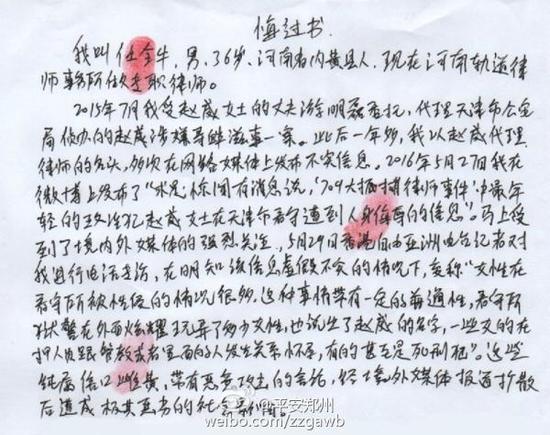 悔过书
我叫任全牛，男，36岁，河南省内黄县人，现在河南轨道律
师事务所做专职律师。
2015年7月我受赵威女士的丈夫游明磊委托，代理天津市公安
局侦办的赵威涉嫌寻衅滋事一案。此后一年多，我以赵威代理
律师的名头，多次在网络媒体上发布不实信息。2016年5月27日我在
微博上发布了“水兄，你们有消息说，‘709大抓捕律师事件’中最年
轻的政治犯赵威女士在天津看守所遭到人身侮辱的信息”。马上受
到了境内外媒体的强烈关注，5月29日香港自由亚洲电台记者对
我进行电话专访，在明知该信息虚假不实的情况下，妄称“女性在
看守所被性侵的情况很多，这种事情带有一定的普遍性，看守所
狱警在外面炫耀玩弄了多少女性，也说出了赵威的名字，一些女的在
押人员跟管教或者里面的人发生关系怀孕，有的甚至是死刑犯”。这些
纯属信口雌黄，带有恶意攻击的言论，经境外媒体报道扩散
后造成极其恶劣的社会影响。
@平安郑州
weibo.com/zzgawb